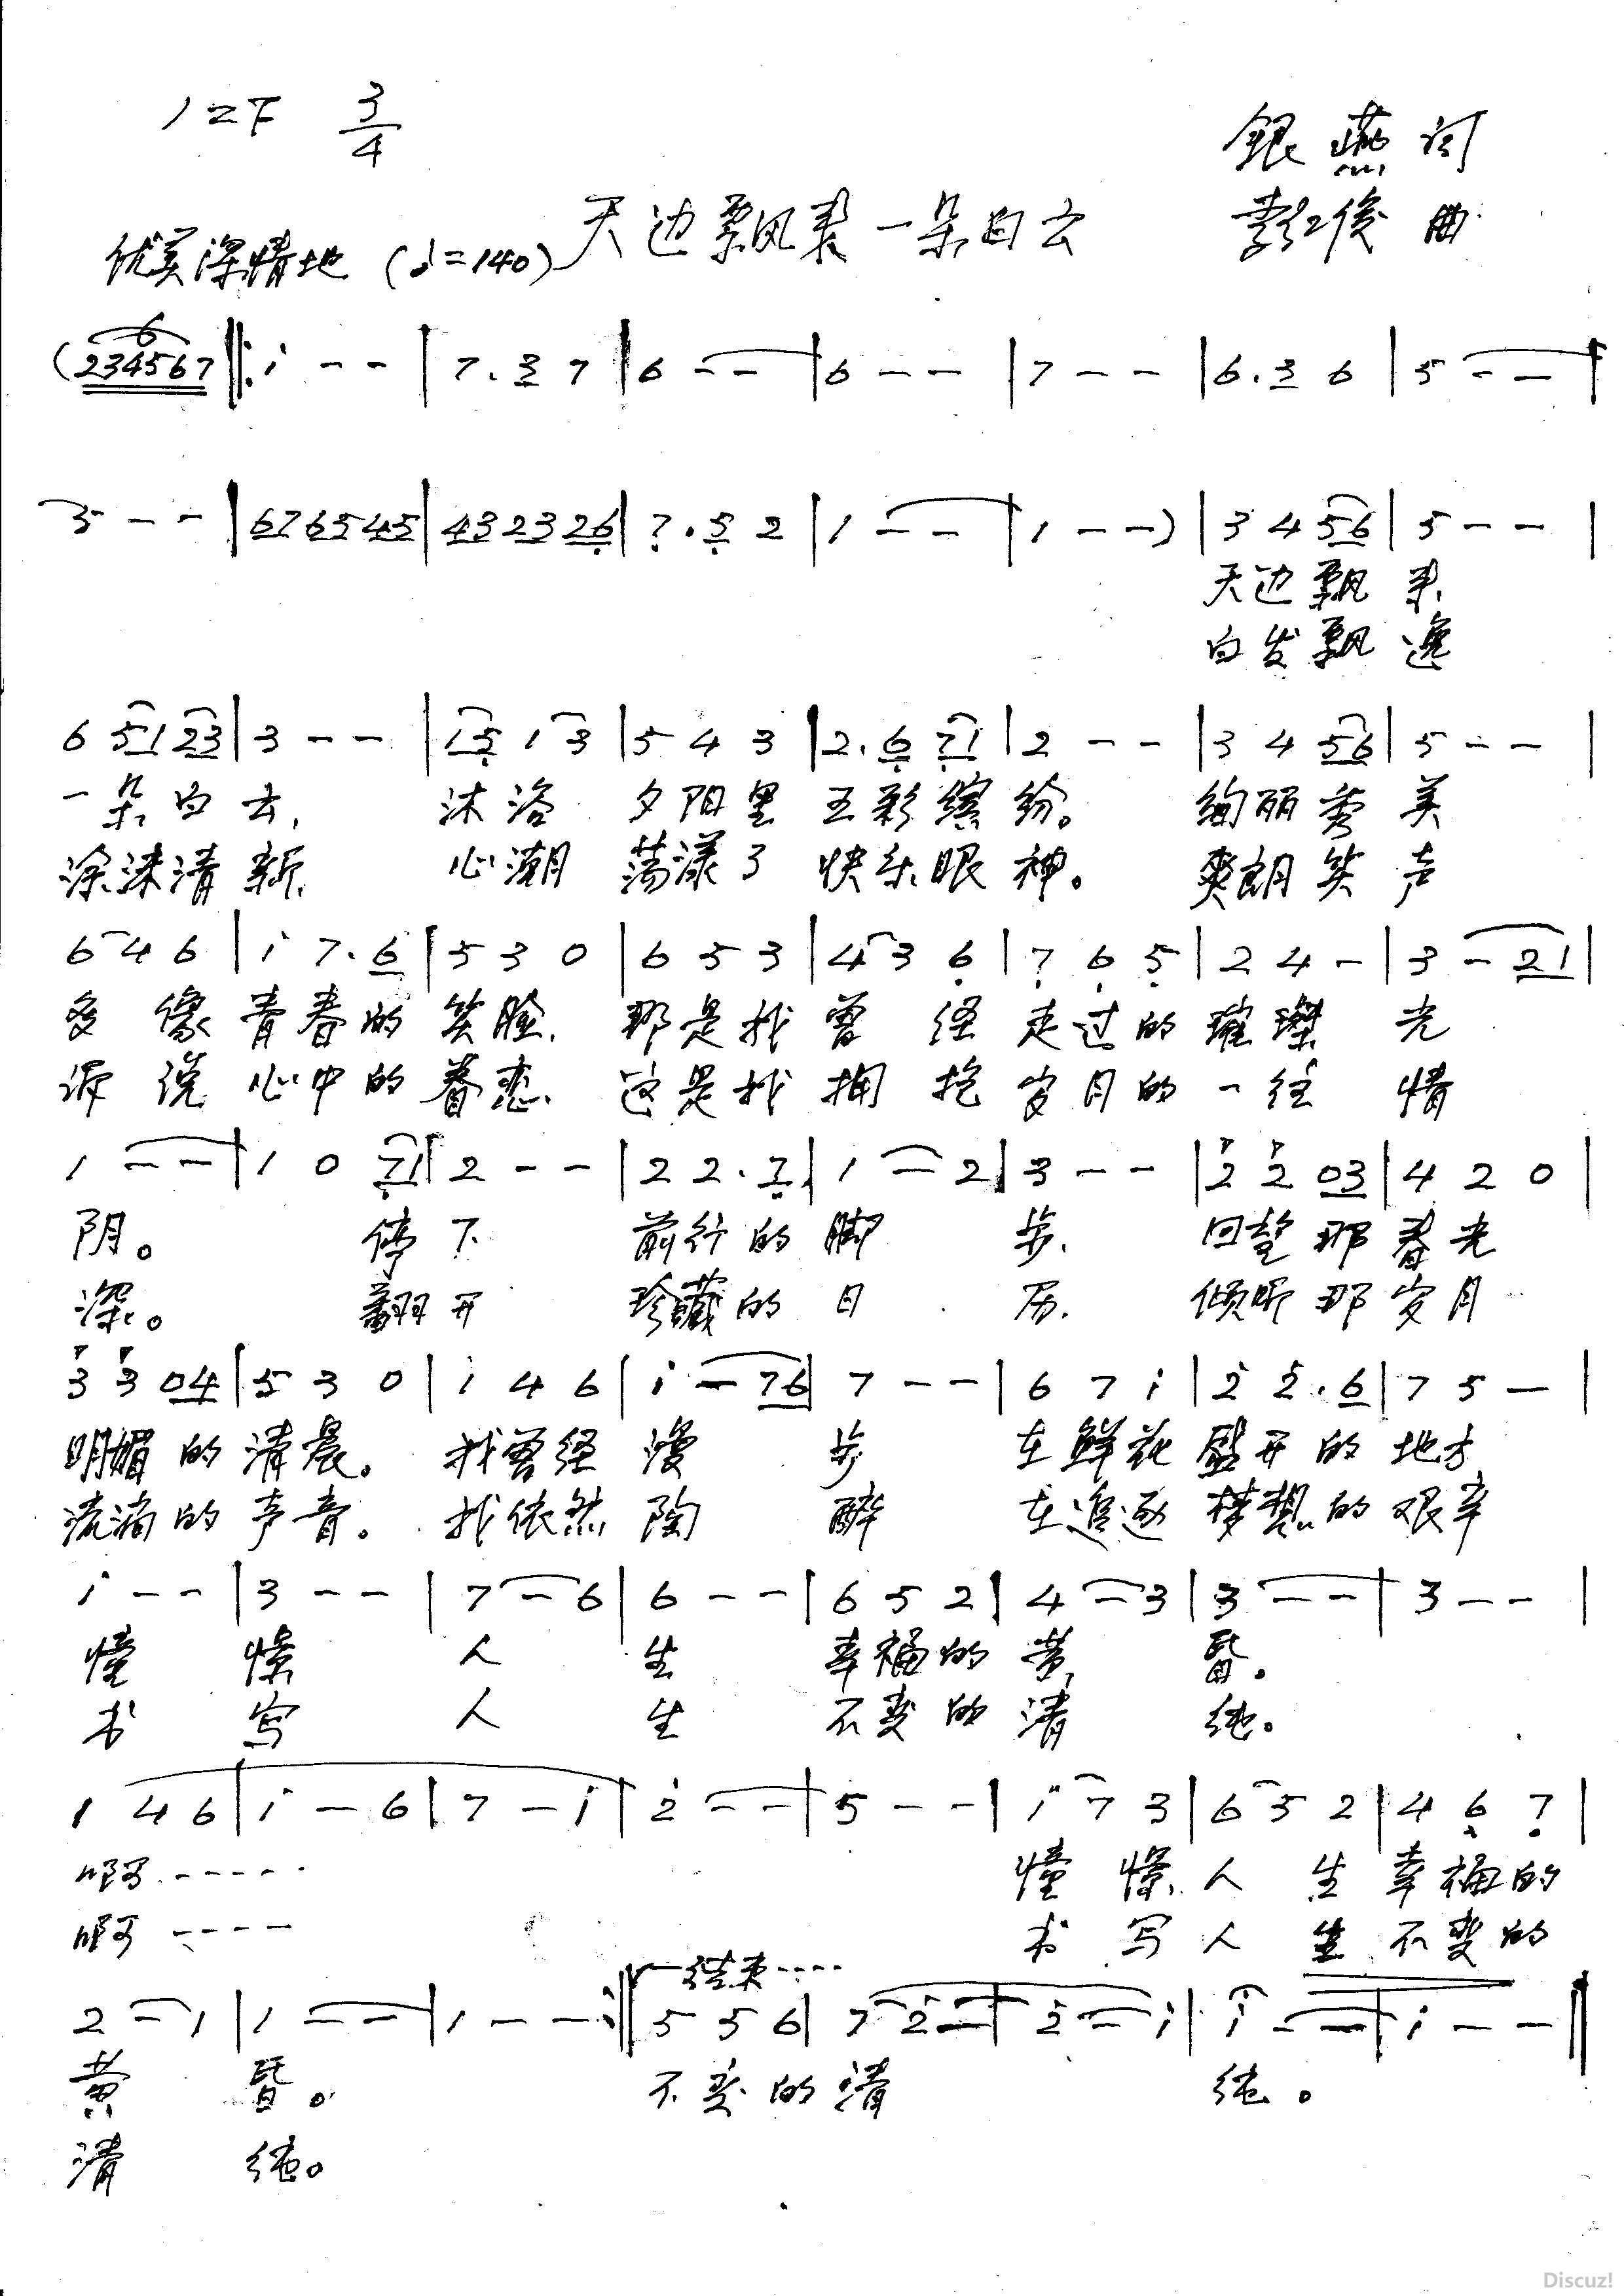 1=F 3/4
银燕 词
天边飘来一朵白云
李红俊 曲
优美深情地 (♩=140)
(234567 ‖: i - - | 7. 3 7 | 6 - - | 6 - - | 7 - - | 6. 3 6 | 5 - - |
5 - - | 67 65 45 | 43 23 26 | 7. 5 2 | 1 - - | 1 - - ) | 3 4 56 | 5 - - |
天边飘来
白发飘逸
6 51 23 | 3 - - | 15 1 3 | 5 4 3 | 2. 6 71 | 2 - - | 3 4 56 | 5 - - |
一朵白云, 沐浴 夕阳里 五彩缤纷。 绚丽秀美
涂抹清新, 心潮 荡漾了 快乐眼神。 爽朗笑声
6 4 6 | i 7. 6 | 5 3 0 | 6 5 3 | 4 3 6 | 7 6 5 | 2 4 - | 3 - 21 |
多像青春的笑脸, 那是我曾经走过的璀璨光
诉说心中的眷恋, 这是我拥抱岁月的一往情
1 - - | 1 0 71 | 2 - - | 2 2. 7 | 1 - 2 | 3 - - | 2 2 03 | 4 2 0 |
阴。 停下 前行的脚步, 回望那春光
深。 翻开 珍藏的日历, 倾听那岁月
3 3 04 | 5 3 0 | 1 4 6 | i - 76 | 7 - - | 6 7 i | 2 2. 6 | 7 5 - |
明媚的清晨。 我曾经漫步 在鲜花盛开的地方
流淌的声音。 我依然陶醉 在追逐梦想的艰辛
i - - | 3 - - | 7 - 6 | 6 - - | 6 5 2 | 4 - 3 | 3 - - | 3 - - |
憧憬人生 幸福的黄昏。
书写人生 不变的清纯。
1 4 6 | i - 6 | 7 - i | 2 - - | 5 - - | i 7 3 | 6 5 2 | 4 6 7 |
啊 ----- 憧憬人生幸福的
啊 ---- 书写人生不变的
结束····
2 - 1 | 1 - - | 1 - - :‖ 5 5 6 | 7 2 - | 2 - i | i - - | i - - ‖
黄昏。 不变的清纯。
清纯。
Discuz!